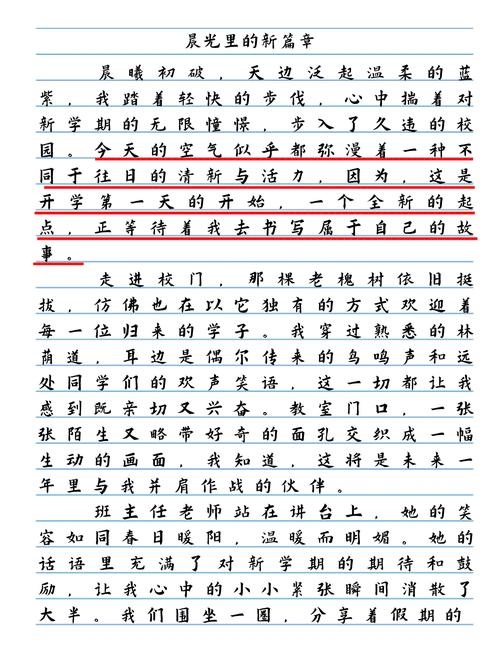 晨光里的新篇章
晨曦初破，天边泛起温柔的蓝
紫，我踏着轻快的步伐，心中揣着对
新学期的无限憧憬，步入了久违的校
园。今天的空气似乎都弥漫着一种不
同于往日的清新与活力，因为，这是
开学第一天的开始，一个全新的起
点，正等待着我去书写属于自己的故
事。
走进校门，那棵老槐树依旧挺
拔，仿佛也在以它独有的方式欢迎着
每一位归来的学子。我穿过熟悉的林
荫道，耳边是偶尔传来的鸟鸣声和远
处同学们的欢声笑语，这一切都让我
感到既亲切又兴奋。教室门口，一张
张陌生又略带好奇的面孔交织成一幅
生动的画面，我知道，这将是未来一
年里与我并肩作战的伙伴。
班主任老师站在讲台上，她的笑
容如同春日暖阳，温暖而明媚。她的
话语里充满了对新学期的期待和鼓
励，让我心中的小小紧张瞬间消散了
大半。我们围坐一圈，分享着假期的